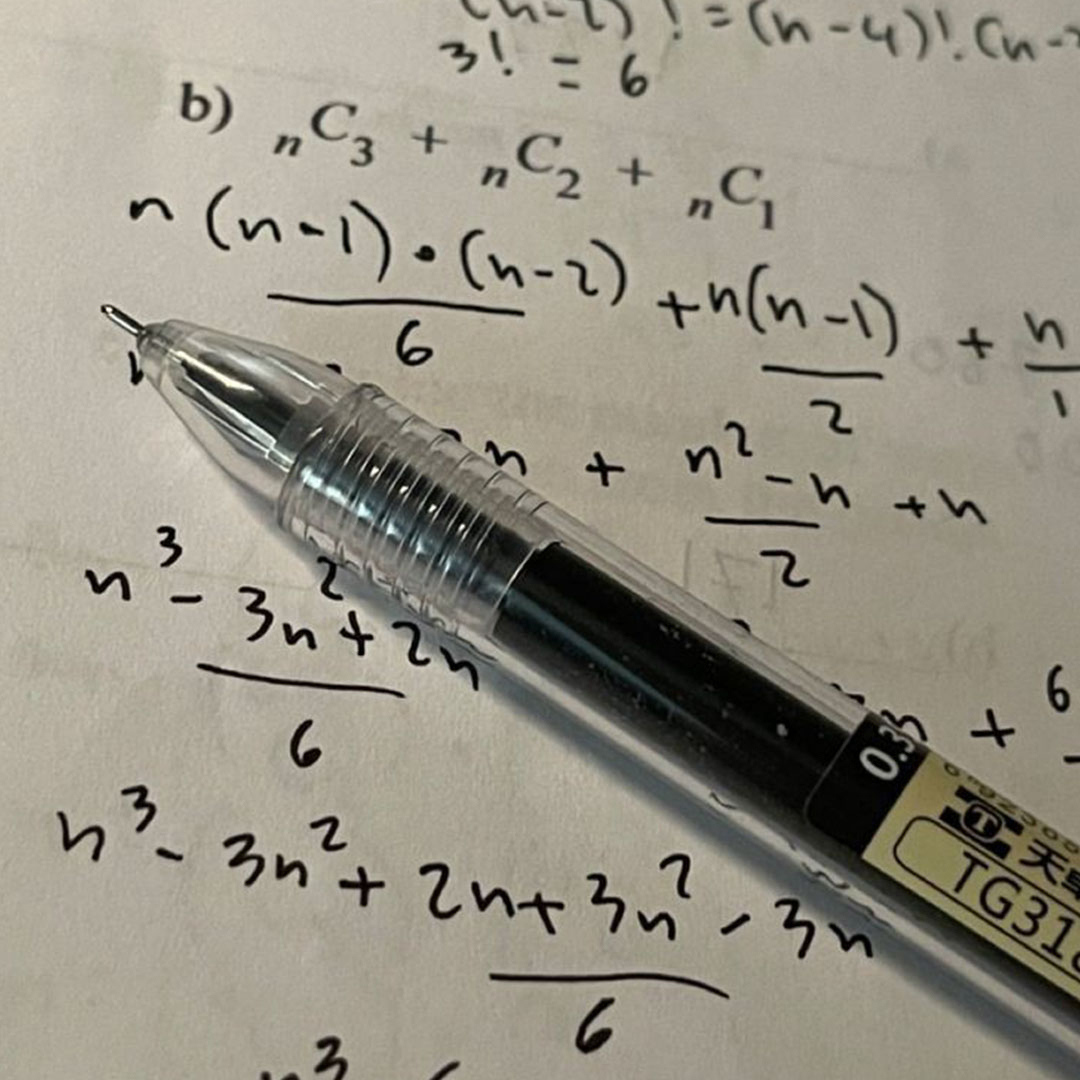 (n-2)! = (n-4)!. (n-
3! = 6
b) nC3 + nC2 + nC1
n(n-1)·(n-2)/6 + n(n-1)/2 + n/1
n + n²-n/2 + n
n³ - 3n² + 2n/6
+ 6
n³ - 3n² + 2n + 3n² - 3n/6
n³
0.3
天
TG31